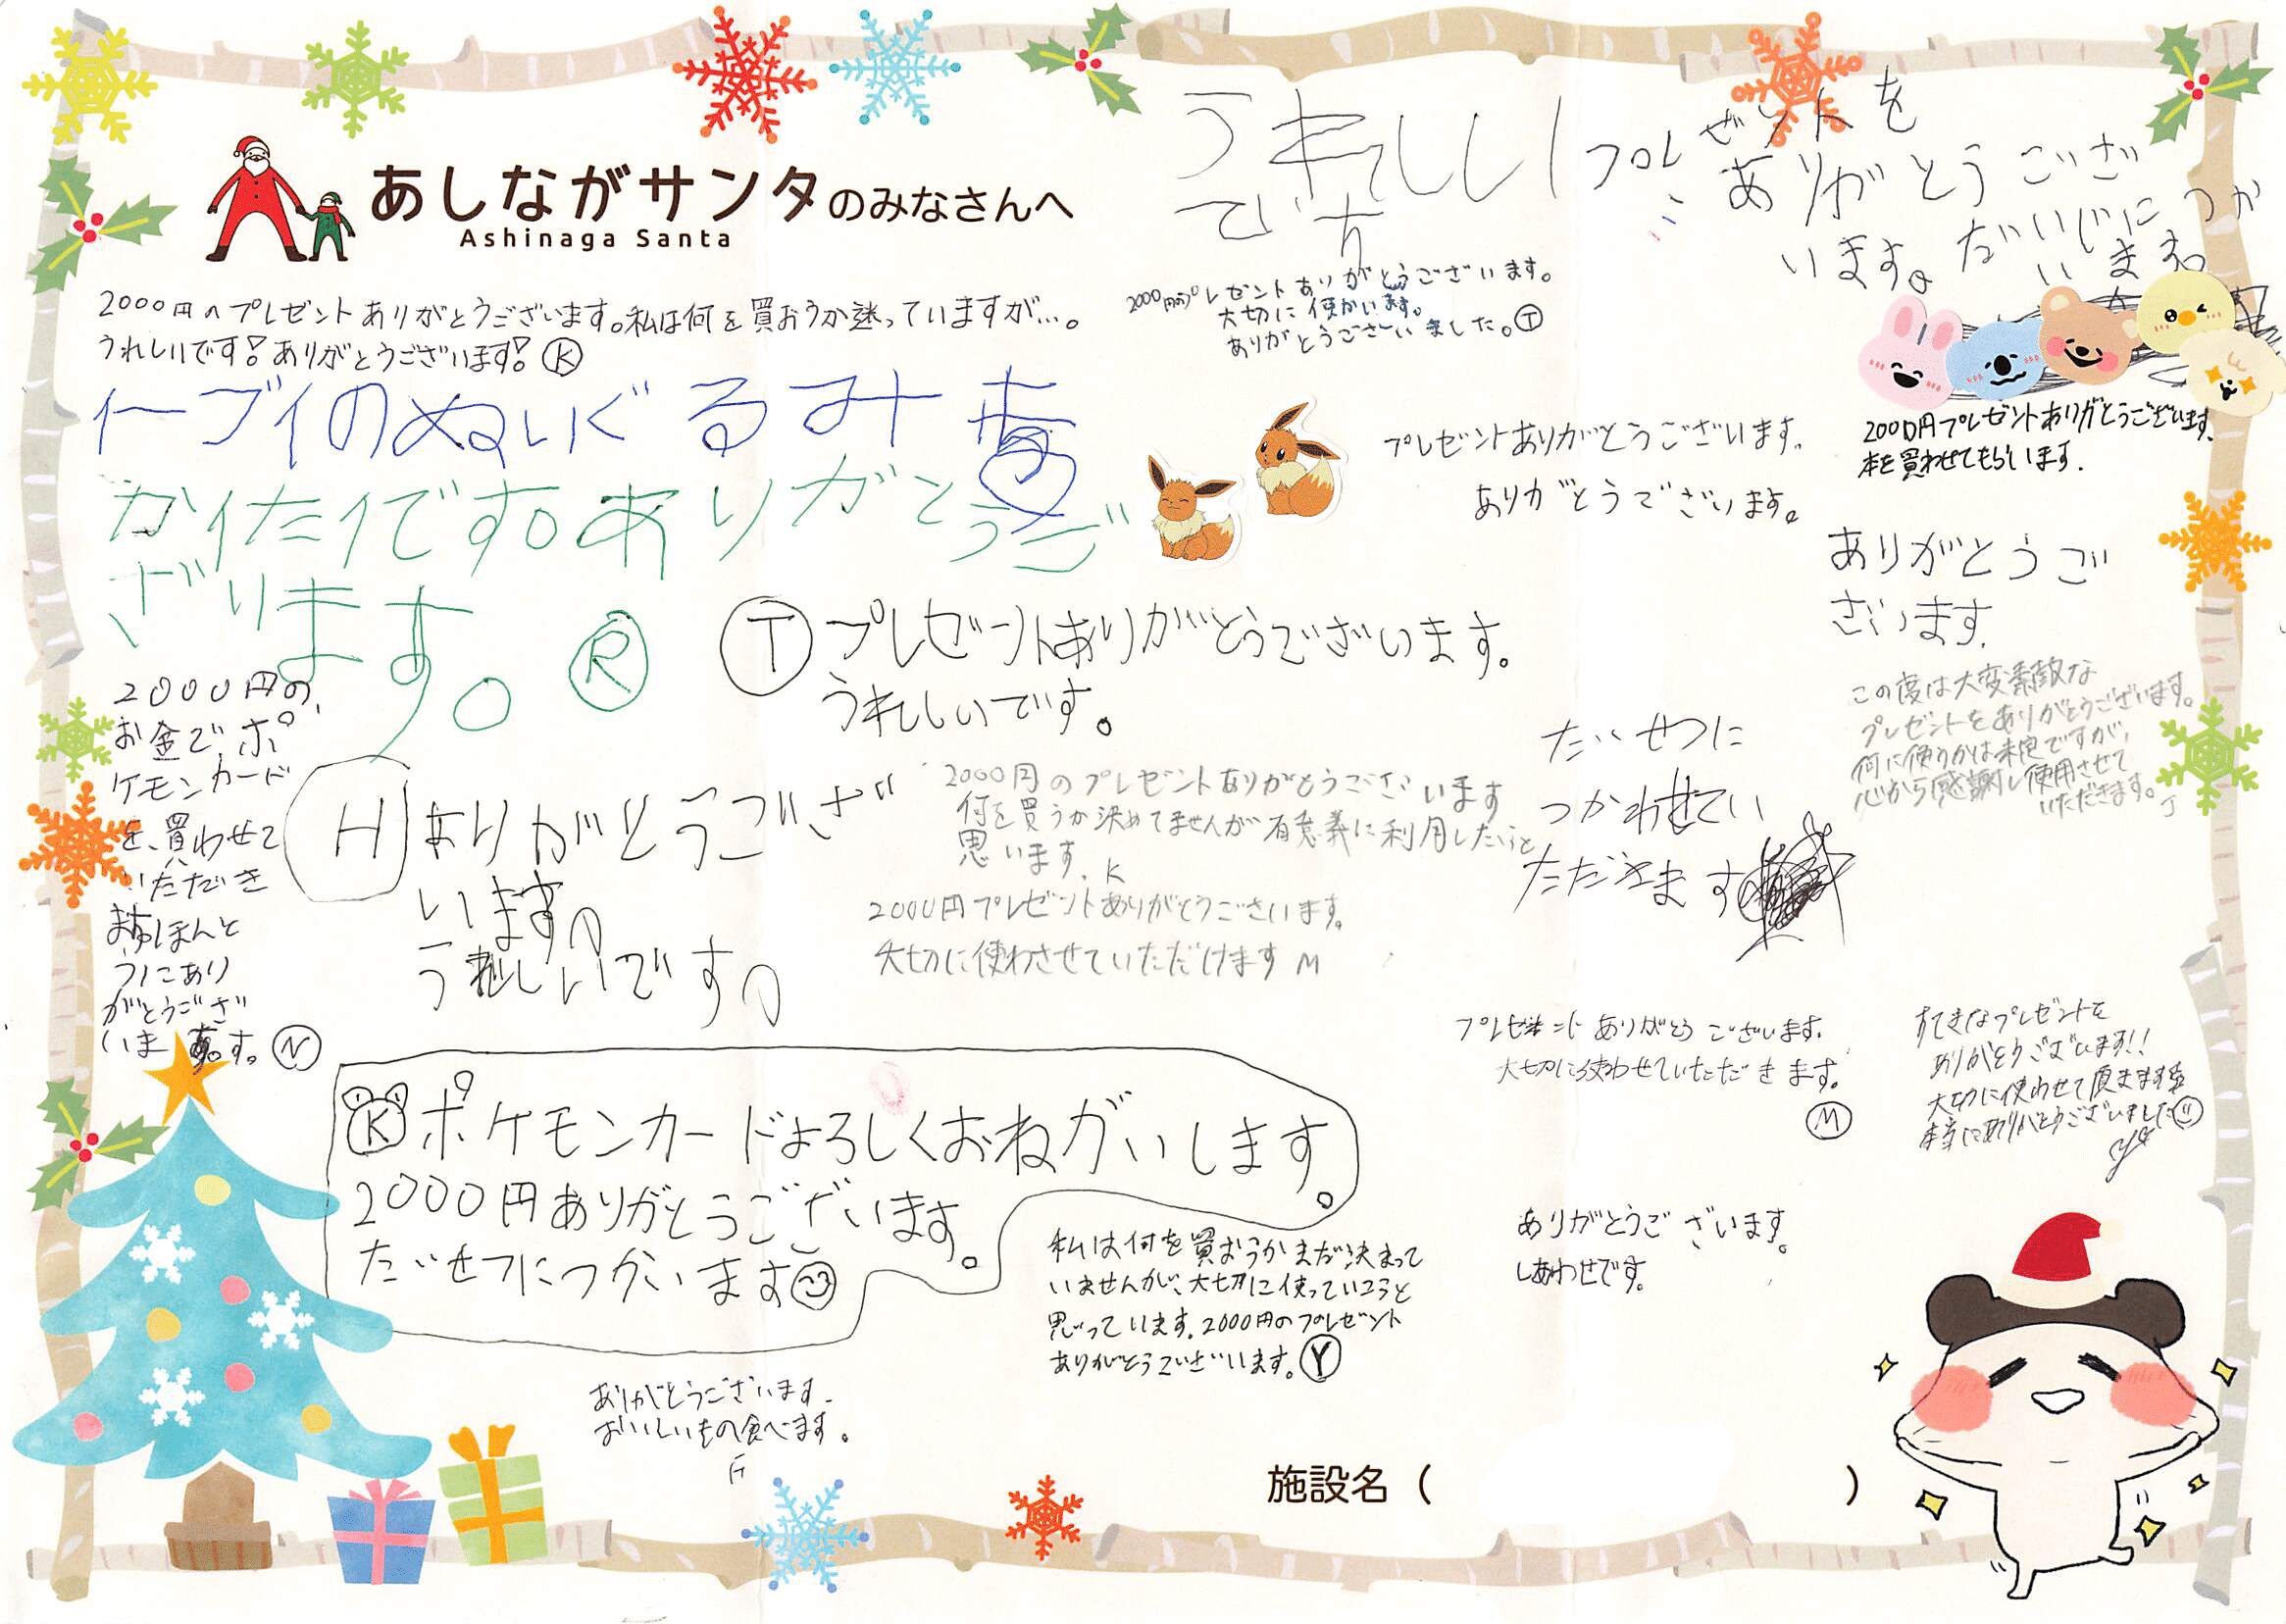 あしながサンタのみなさんへ
Ashinaga Santa
2000円のプレゼントありがとうございます。私は何を買おうか迷っていますが…。
うれしいです!ありがとうございます! K
イーブイのぬいぐるみ
かいたいです。ありがとうご
ざいます。 R
うれしい
です
プレゼントを
ありがとうござ
います。だいじにつか
います。
2000円のプレゼントありがとうございます。
大切に使かいます。
ありがとうございました。T
2000円プレゼントありがとうございます。
本を買わせてもらいます。
プレゼントありがとうございます。
ありがとうでざいます。
ありがとうご
ざいます。
T プレゼントありがとうございます。
うれしいです。
この度は大変素敵な
プレゼントをありがとうございます。
何に使うかは未定ですが、
心から感謝し使用させて
いただきます。J
2000円の
お金で、ポ
ケモンカード
を、買わせて
いただき
ます。ほんと
うにあり
がとうござ
います。N
H ありがとうござ
います。
うれしいです。
2000円のプレゼントありがとうございます
何を買うか決めてませんが有意義に利用したいと
思います. K
2000円プレゼントありがとうございます。
大切に使わさせていただけます M
たいせつに
つかわせてい
ただきます
プレゼントありがとうございます。
大切に使わせていただきます。
M
すてきなプレゼントを
ありがとうございます!!
大切に使わせて頂きます
本当にありがとうございました
K ポケモンカードよろしくおねがいします。
2000円ありがとうございます。
たいせつにつかいます
私は何を買おうかまだ決まって
いませんが、大切に使っていこうと
思っています。2000円のプレゼント
ありがとうございます。Y
ありがとうございます。
しあわせです。
ありがとうございます.
おいしいもの食べます。
施設名（ ）